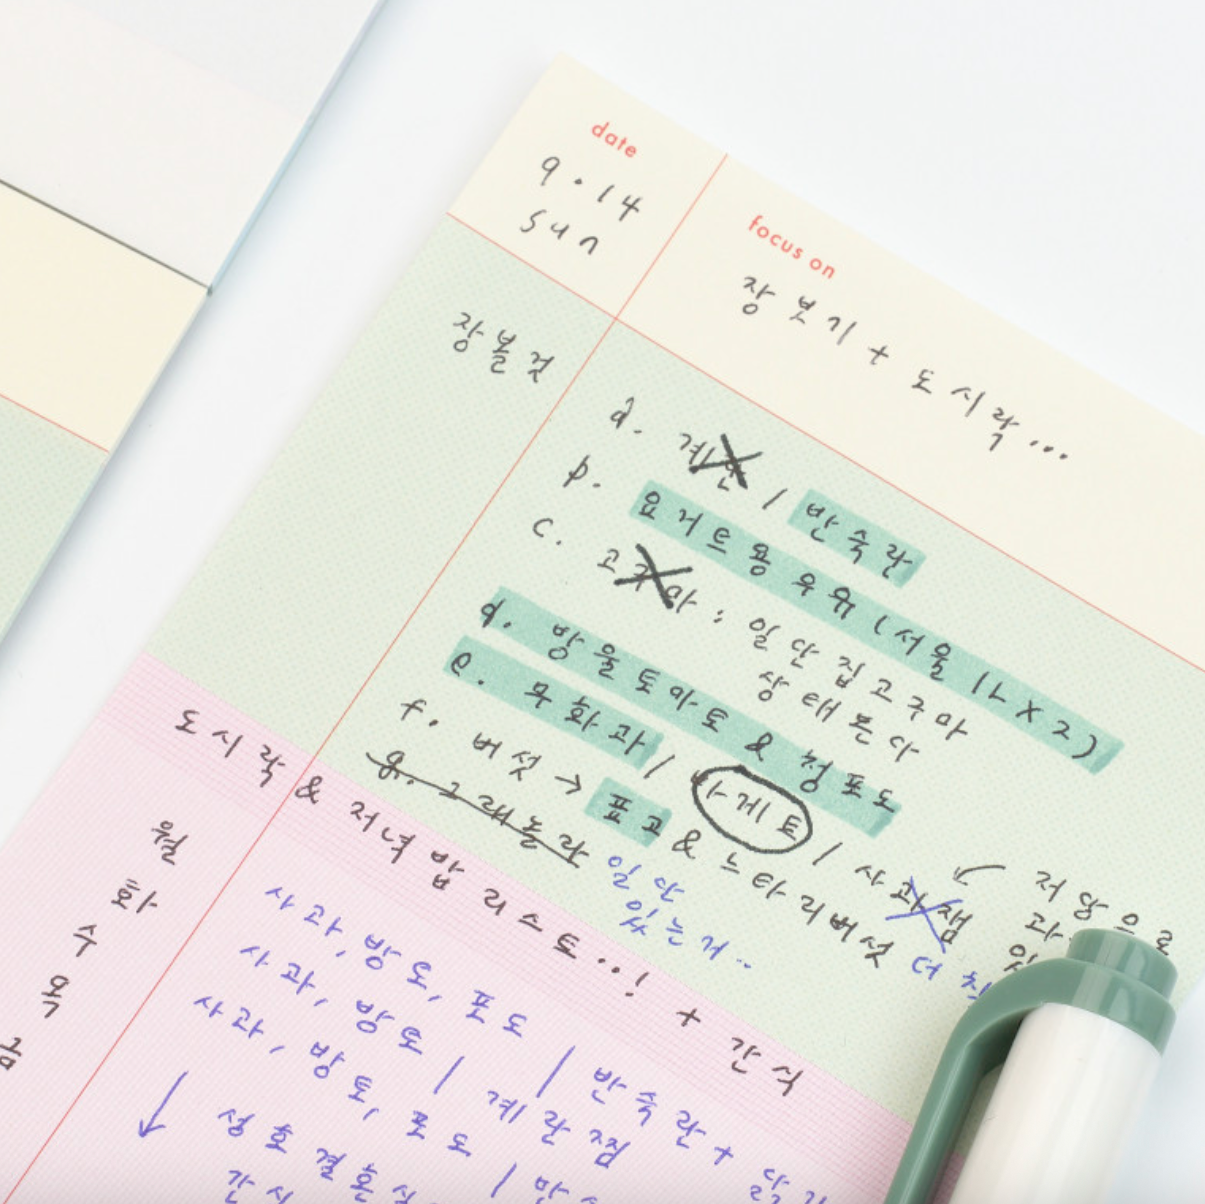 date
9.14
sun
focus on
장보기 + 도시락...
장볼것
a. 계란 / 반숙란
b. 요거트용 우유 (서울 1L X 2)
c. 고구마 : 일단 집고구마
상태 본다
d. 방울토마토 & 청포도
e. 무화과 / 바게트 / 사과잼
← 저당으로
f. 버섯 → 표고 & 느타리버섯 더
g. 그래놀라 일단
있는거..
도시락 & 저녁밥 리스트..! + 간식
월
화
수
목
금
사과, 방토, 포도 / 반숙란 +
사과, 방토 / 계란찜
사과, 방토, 포도 /
↓
성호 결혼식